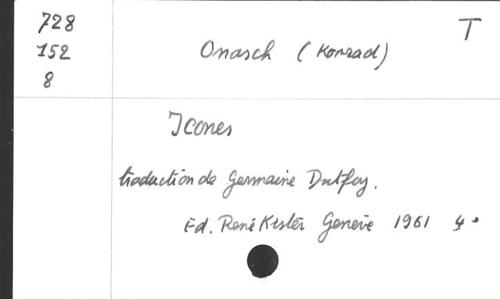 728
T
152
Onasch (Konrad)
8
Icones
traduction de Germaine Dutfoy.
Ed. René Kister Genève 1961 4°